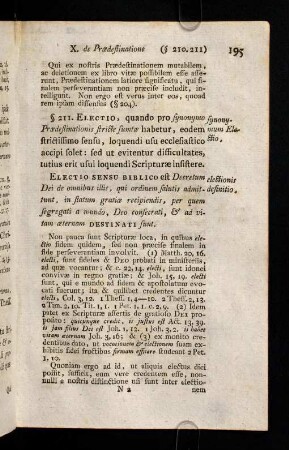 X. de Prædestinatione (§ 210.211) 195
Qui ex nostris Prædestinationem mutabilem,
ac deletionem ex libro vitæ possibilem esse asse-
runt, Prædestinationem latiore significatu, qui fi-
nalem perseverantiam non præcise includit, in-
telligunt. Non ergo est verus inter eos, quoad
rem ipsam dissensus (§ 204).
§ 211. ELECTIO, quando pro synonymo
Prædestinationis stricte sumtæ habetur, eodem
strictissimo sensu, loquendi usu ecclesiastico
accipi solet: sed ut evitentur difficultates,
tutius erit usui loquendi Scripturæ insistere.
synony-
mum Ele-
ctio,
ELECTIO SENSU BIBLICO est Decretum
Dei de omnibus illis, qui ordinem salutis admit-
tunt, in statum gratiæ recipiendis, per quem
segregati a mundo, Deo consecrati, & ad vi-
tam æternam DESTINATI sunt.
electionis
definitio,
Non pauca sunt Scripturæ loca, in quibus ele-
ctio fidem quidem, sed non præcise finalem in
fide perseverantiam involvit. (1) Matth. 20, 16.
electi, sunt fideles & DEO probati in ministerio,
ad quæ vocantur; & c. 22, 14. electi, sunt idonei
convivæ in regno gratiæ; & Joh. 15, 19. electi
sunt, qui a mundo ad fidem & apostolatum evo-
cati fuerunt; ita & quilibet credentes dicuntur
electi, Col. 3, 12. 1 Thess. 1, 4—10. 2 Thess. 2, 13.
2 Tim. 2, 10. Tit. 1, 1. 1 Pet. 1, 1. c. 2, 9. (2) Idem
patet ex Scripturæ assertis de gentiso DEI pro-
posito: quicunque credit, is justus est Act. 13, 39.
is jam filius Dei est Joh. 1, 12. 1 Joh. 3, 2. is habet
vitam æternam Joh. 3, 16; & (3) ex monito cre-
dentibus dato, ut vocationem & electionem suam ex-
hibitis fidei fructibus firmam efficere studeant 2 Pet.
3, 10.
Quoniam ergo ad id, ut aliquis electus dici
possit, sufficit, eum vere credentem esse, non-
nulli a nostris distinctione usi sunt inter electio-
N 2 nem